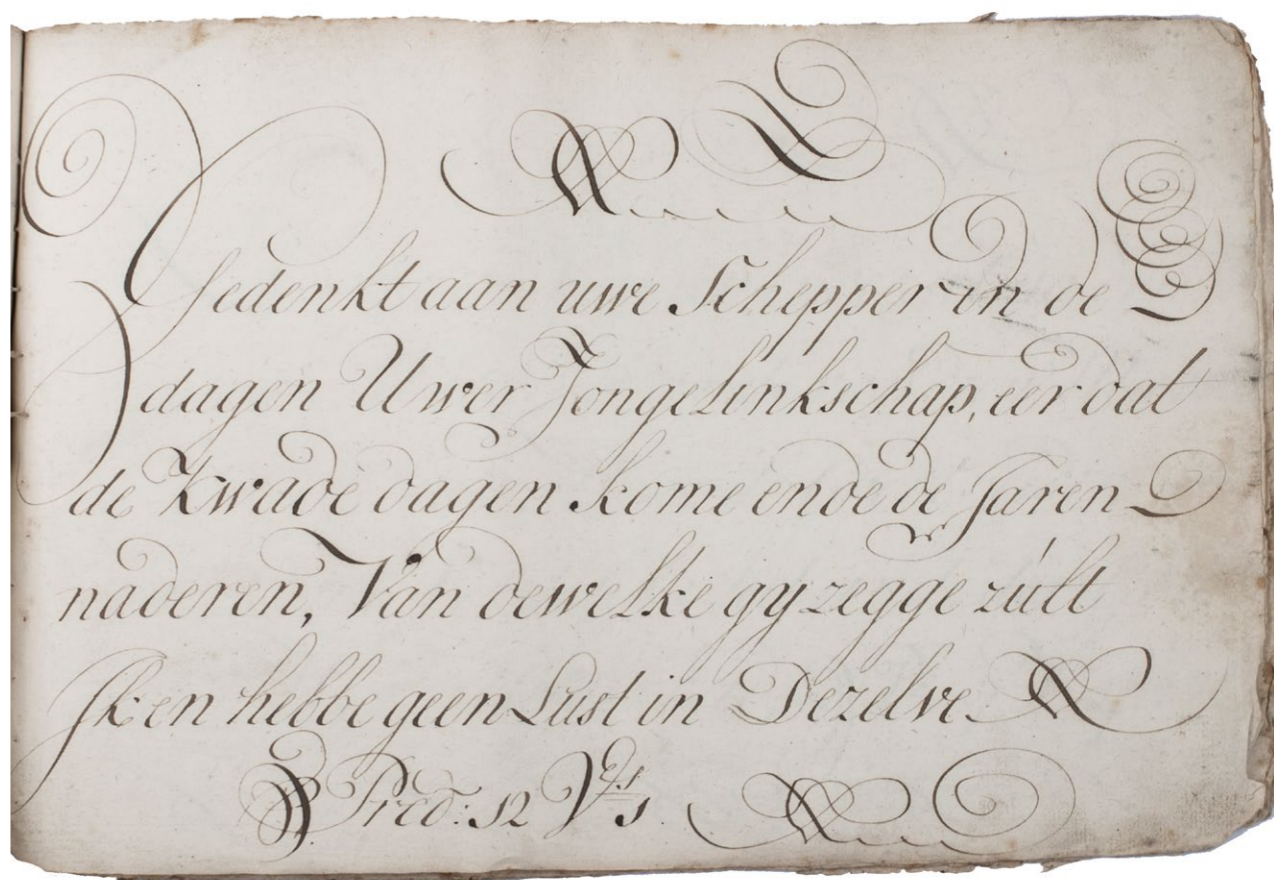 Gedenkt aan uwe Schepper in de
dagen Uwer Jongelinkschap, eer dat
de Kwade dagen kome ende de Jaren
naderen, Van dewelke gy zegge zúlt
Ik en hebbe geen Lust in Dezelve
Pred: 12 Vs 1.